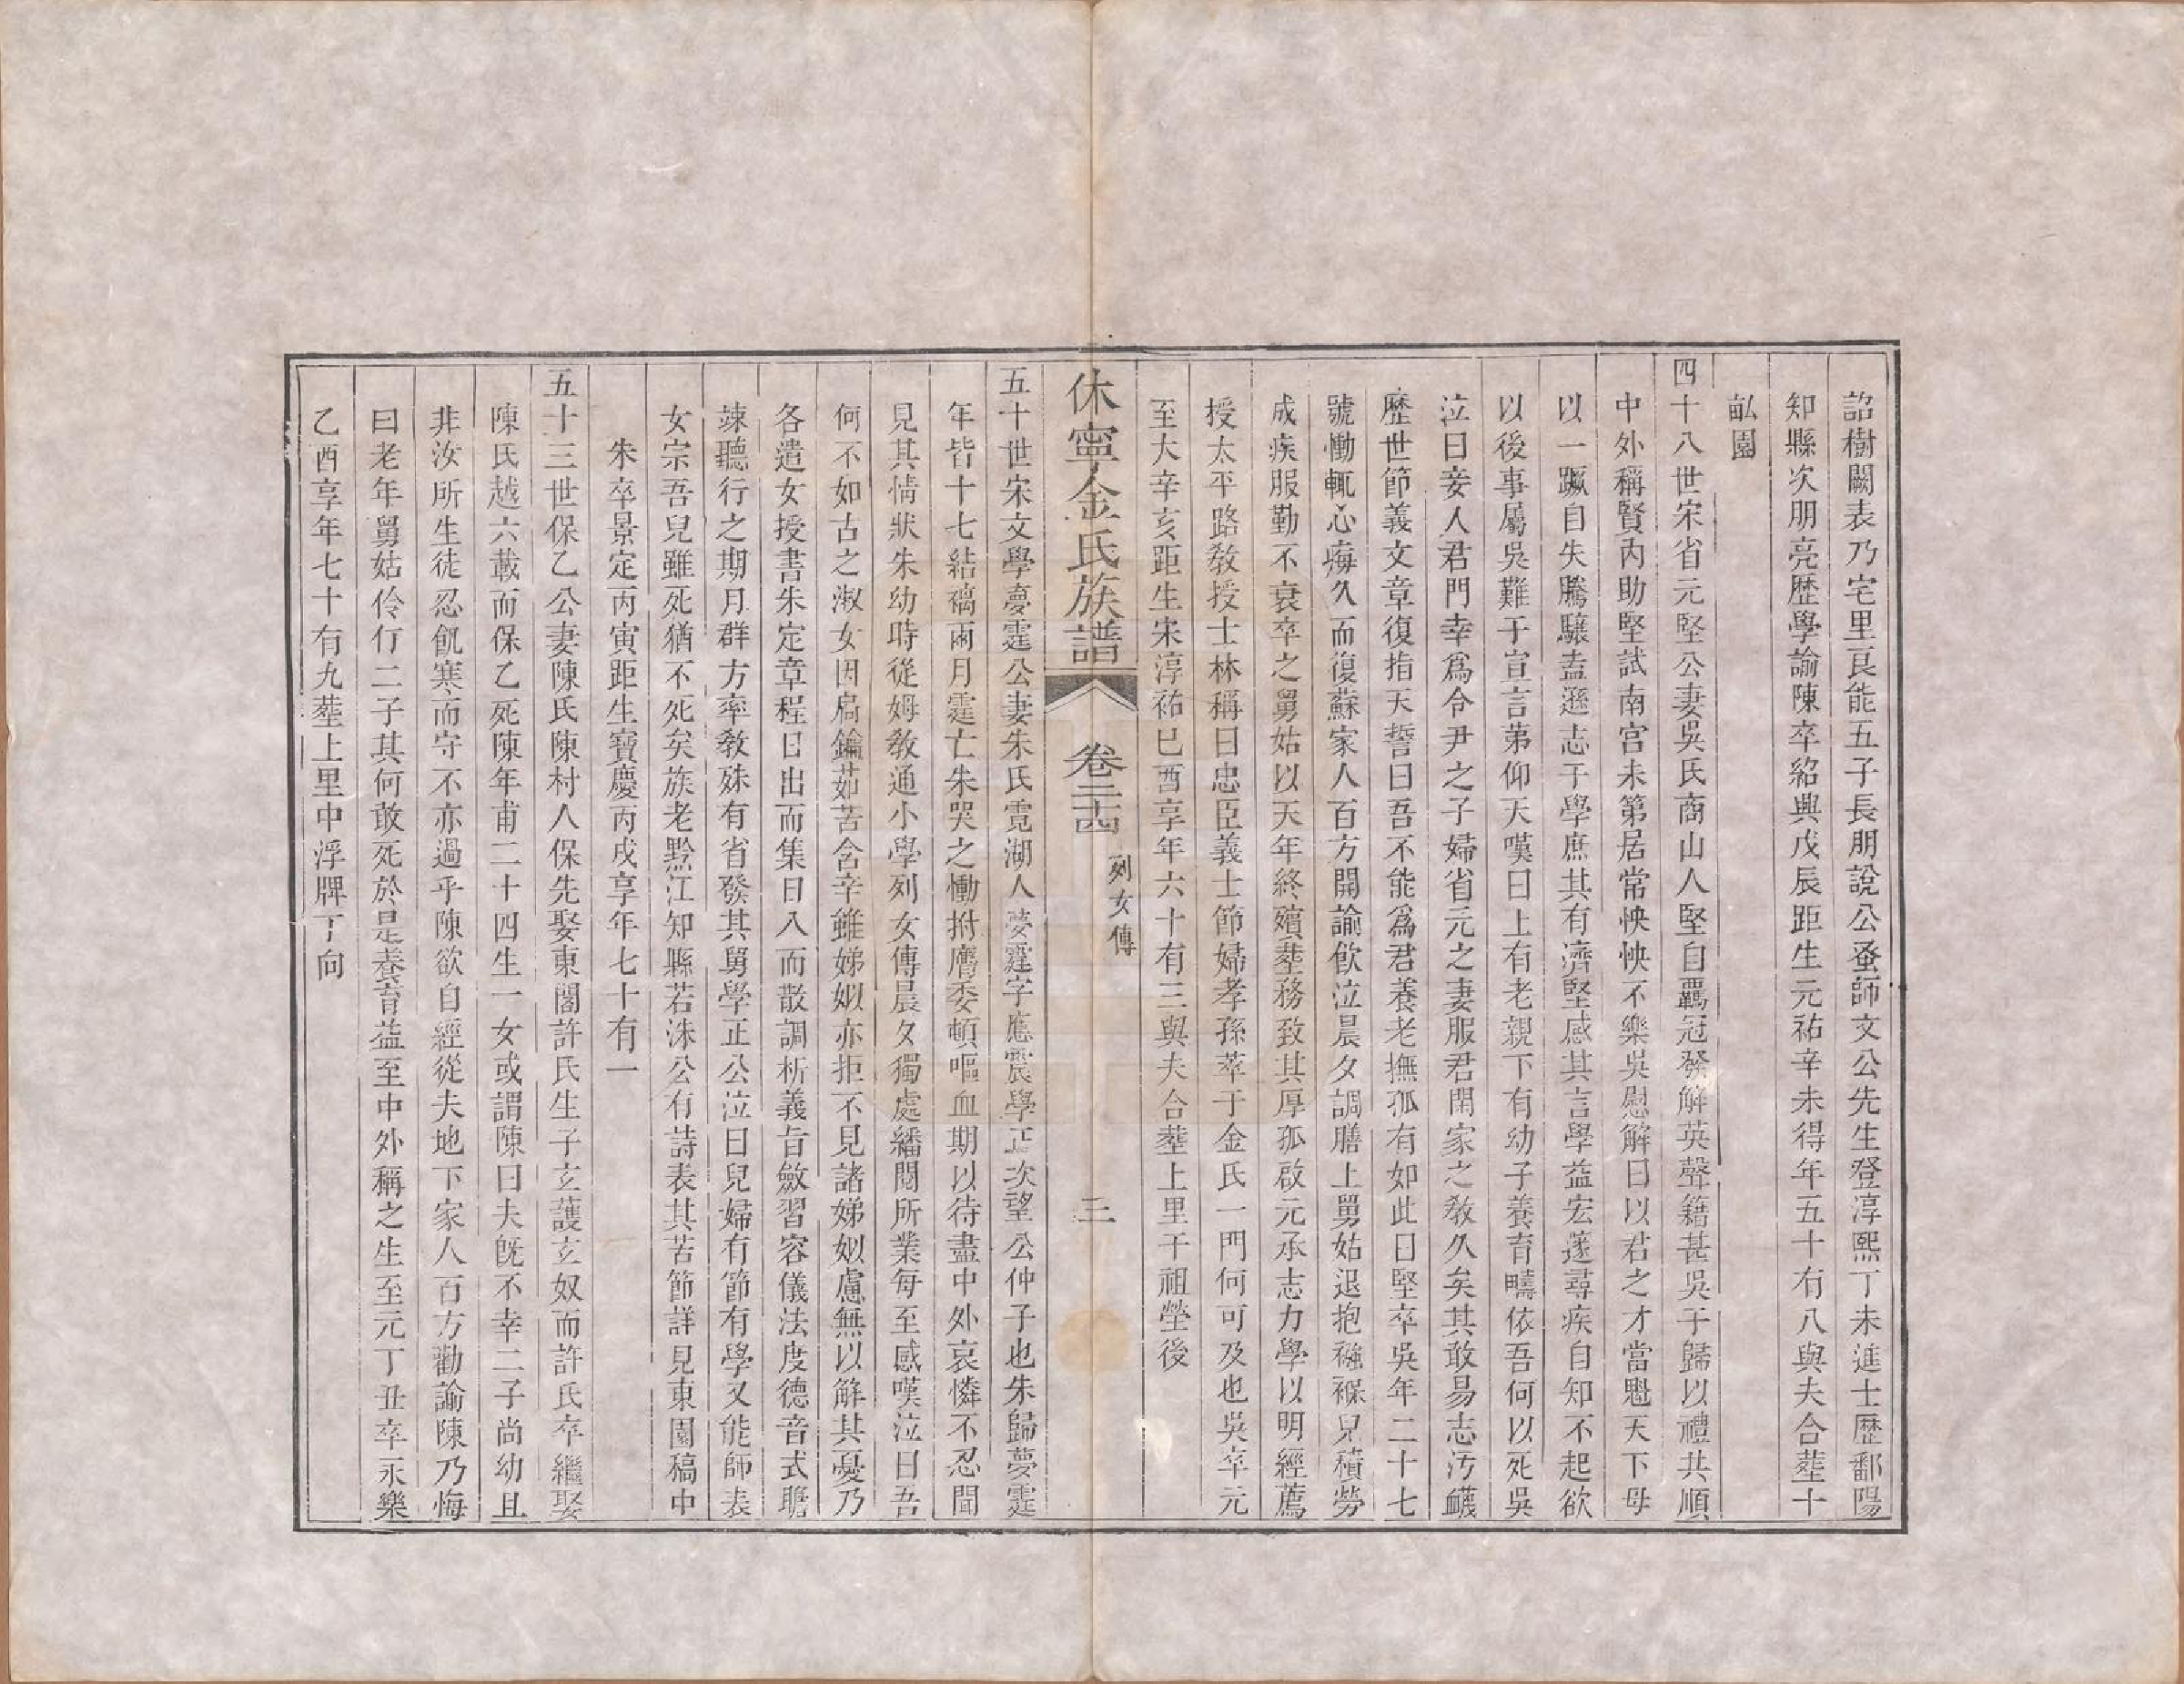 詔樹闕表乃宅里良能五子長朋說公蚤師文公先生登淳熙丁未進士歷鄱陽
知縣次朋亮歷學諭陳卒紹興戊辰距生元祐辛未得年五十有八與夫合塟十
畝園
四十八世宋省元堅公妻吳氏商山人堅自覊冠發解英聲籍甚吳于歸以禮共順
中外稱賢內助堅試南宮未第居常怏怏不樂吳慰解曰以君之才當魁天下毋
以一蹶自失騰驤盍遜志于學庶其有濟堅感其言學益宏邃尋疾自知不起欲
以後事屬吳難于宣言第仰天嘆曰上有老親下有幼子養育疇依吾何以死吳
泣曰妾人君門幸爲令尹之子婦省元之妻服君閑家之敎久矣其敢易志汚衊
歷世節義文章復指天誓曰吾不能爲君養老撫孤有如此日堅卒吳年二十七
號慟輒心痗久而復蘇家人百方開諭飮泣晨夕調膳上舅姑退抱襁褓兒積勞
成疾服勤不衰卒之舅姑以天年終殯塟務致其厚孤啟元承志力學以明經薦
授太平路敎授士林稱曰忠臣義士節婦孝孫萃于金氏一門何可及也吳卒元
至大辛亥距生宋淳祐巳酉享年六十有三與夫合塟上里干祖塋後
休寧金氏族譜 卷二十四 列女傳 三
五十世宋文學夢霆公妻朱氏霓湖人夢霆字應震學正次望公仲子也朱歸夢霆
年皆十七結褵兩月霆亡朱哭之慟拊膺委頓嘔血期以待盡中外哀憐不忍聞
見其情狀朱幼時從姆敎通小學列女傳晨夕獨處繙閱所業每至感嘆泣曰吾
何不如古之淑女因扃鑰茹苦含辛雖娣姒亦拒不見諸娣姒慮無以解其憂乃
各遣女授書朱定章程日出而集日入而散調析義旨斂習容儀法度德音式瞻
竦聽行之期月群方率敎殊有省發其舅學正公泣曰兒婦有節有學又能師表
女宗吾兒雖死猶不死矣族老黟江知縣若洙公有詩表其苦節詳見東園稿中
朱卒景定丙寅距生寶慶丙戌享年七十有一
五十三世保乙公妻陳氏陳村人保先娶東閣許氏生子玄護玄奴而許氏卒繼娶
陳氏越六載而保乙死陳年甫二十四生一女或謂陳曰夫旣不幸二子尚幼且
非汝所生徒忍飢寒而守不亦過乎陳欲自經從夫地下家人百方勸諭陳乃悔
曰老年舅姑伶仃二子其何敢死於是養育益至中外稱之生至元丁丑卒永樂
乙酉享年七十有九塟上里中浮牌丁向